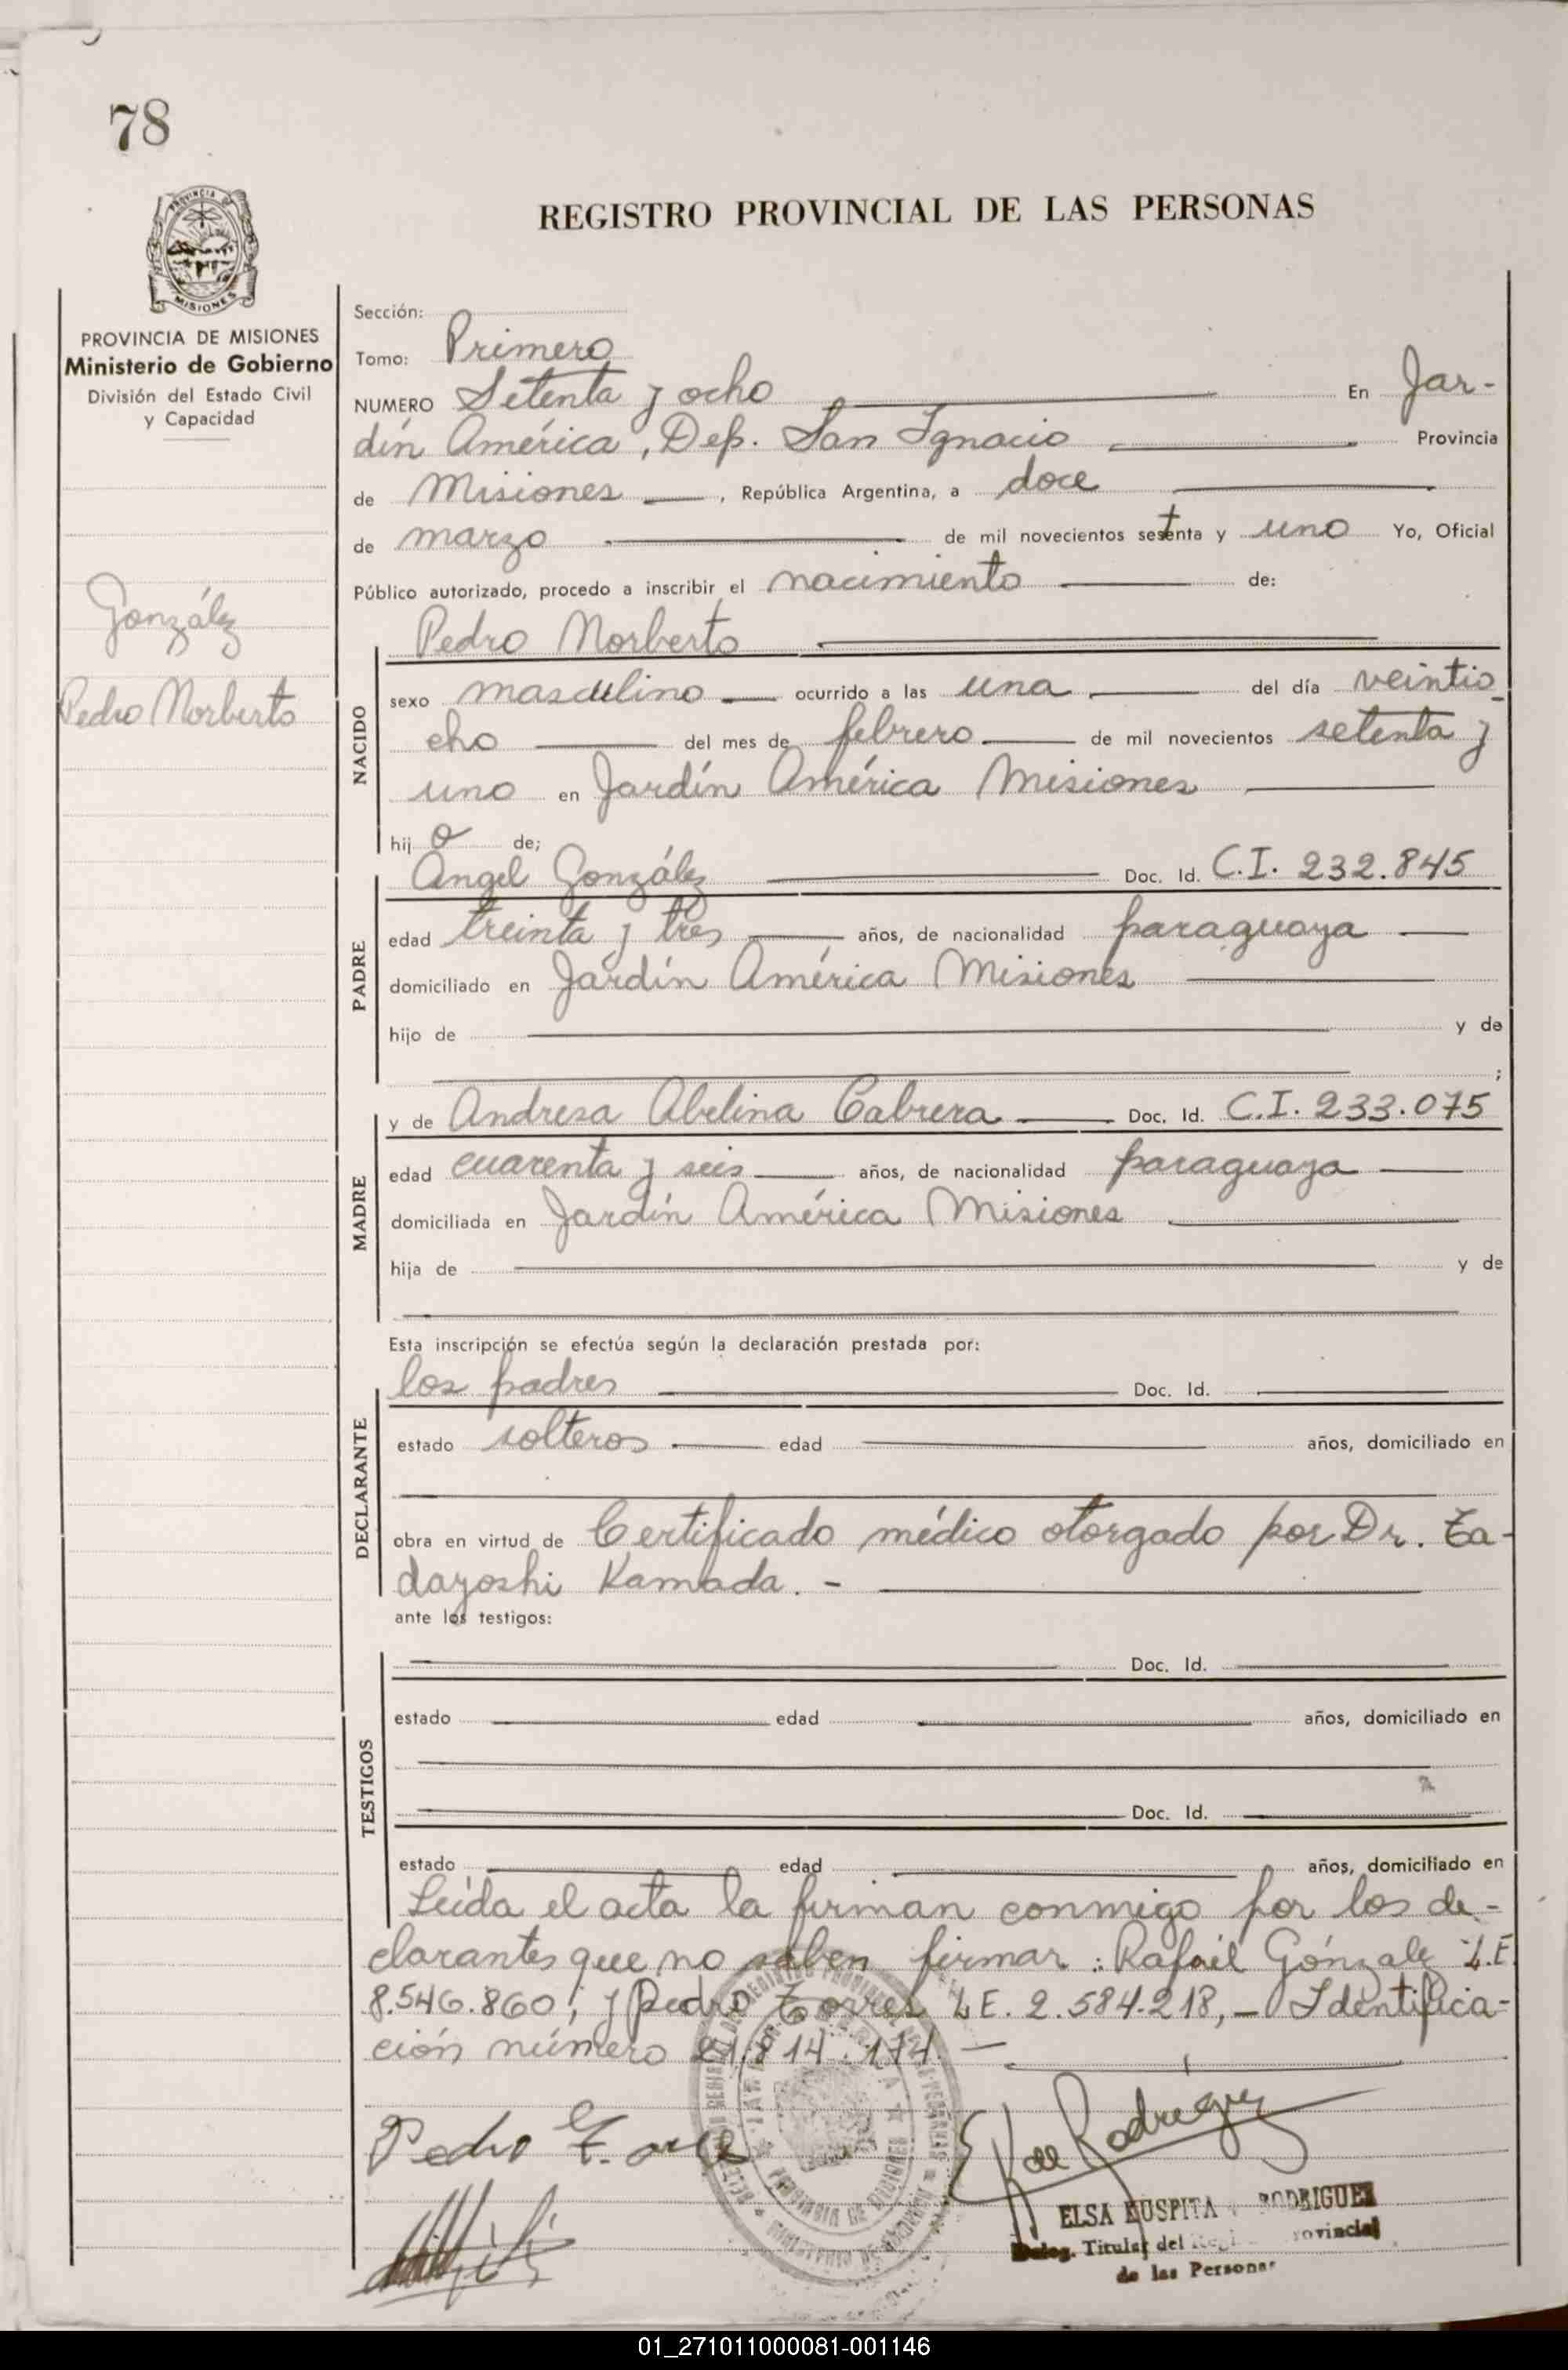 78
PROVINCIA DE
MISIONES
REGISTRO PROVINCIAL DE LAS PERSONAS
PROVINCIA DE MISIONES
Ministerio de Gobierno
División del Estado Civil
y Capacidad
González
Pedro Norberto
Sección:
Tomo: Primero
NUMERO Setenta y ocho En Jar-
dín América, Dep. San Ignacio Provincia
de Misiones , República Argentina, a doce
de marzo de mil novecientos setenta y uno Yo, Oficial
Público autorizado, procedo a inscribir el nacimiento de:
Pedro Norberto
NACIDO
sexo masculino ocurrido a las una del día veintio
cho del mes de febrero de mil novecientos setenta y
uno en Jardín América Misiones
hij o de;
Angel González Doc. Id. C.I. 232.845
PADRE
edad treinta y tres años, de nacionalidad paraguaya
domiciliado en Jardín América Misiones
hijo de y de
;
y de Andresa Abelina Cabrera Doc. Id. C.I. 233.075
MADRE
edad cuarenta y seis años, de nacionalidad paraguaya
domiciliada en Jardín América Misiones
hija de y de
Esta inscripción se efectúa según la declaración prestada por:
los padres Doc. Id.
DECLARANTE
estado solteros edad años, domiciliado en
obra en virtud de Certificado médico otorgado por Dr. Ta-
dayoshi Kamada. -
ante los testigos:
Doc. Id.
TESTIGOS
estado edad años, domiciliado en
Doc. Id.
estado edad años, domiciliado en
Leída el acta la firman conmigo por los de-
clarantes que no saben firmar: Rafael Gónzalez L.E.
8.546.860; y Pedro Torres L.E. 2.584.218, - Identifica-
ción número
Pedro
Rodríguez
ELSA RODRIGUEZ
Deleg. Titular del rovincial
de las Personas
01_271011000081-001146